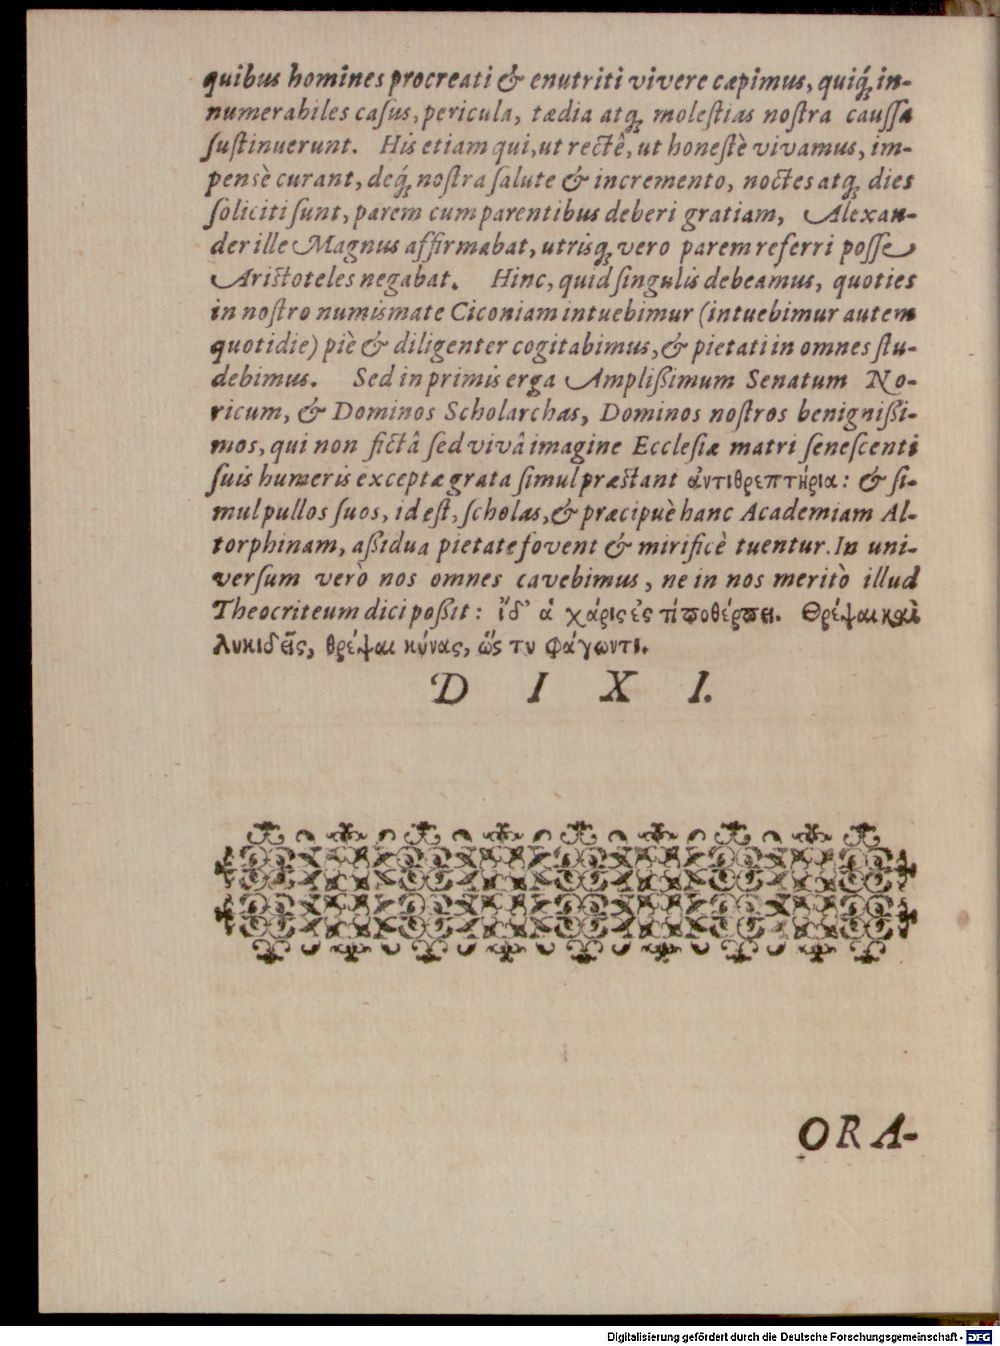 quibus homines procreati & enutriti vivere cæpimus, quiq́; in-
numerabiles casus, pericula, tædia atq; molestias nostra caussa
sustinuerunt. His etiam qui, ut rectè, ut honestè vivamus, im-
pensè curant, deq́; nostra salute & incremento, noctes atq; dies
soliciti sunt, parem cum parentibus deberi gratiam, Alexan-
der ille Magnus affirmabat, utrisq; vero parem referri posse
Aristoteles negabat. Hinc, quid singulis debeamus, quoties
in nostro numismate Ciconiam intuebimur (intuebimur autem
quotidie) piè & diligenter cogitabimus, & pietati in omnes stu-
debimus. Sed in primis erga Amplißimum Senatum No-
ricum, & Dominos Scholarchas, Dominos nostros benignißi-
mos, qui non fictâ sed vivâ imagine Ecclesiæ matri senescenti
suis humeris exceptæ grata simul præstant ἀντιθρεπτήρια: & si-
mul pullos suos, id est, scholas, & præcipuè hanc Academiam Al-
torphinam, aßidua pietate fovent & mirificè tuentur. In uni-
versum verò nos omnes cavebimus, ne in nos meritò illud
Theocriteum dici poßit: ἴδ' ἁ χάρις ἐς τί ποθέρπει. Θρέψαι καὶ
λυκιδεῖς, θρέψαι κύνας, ὥς τυ φάγωντι.
D I X I.
ORA-
Digitalisierung gefördert durch die Deutsche Forschungsgemeinschaft - DFG